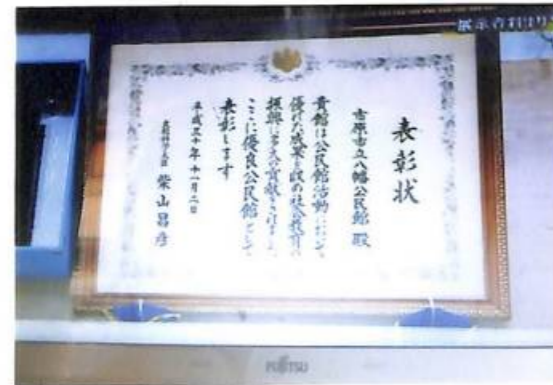 展示資料は
表彰状
市原市立八幡公民館 殿
貴館は公民館活動において
優れた成果を収め社会教育の
振興に多大の貢献をされました
ここに優良公民館として
表彰します
平成三十年十一月二日
文部科学大臣 柴山昌彦
FUJITSU